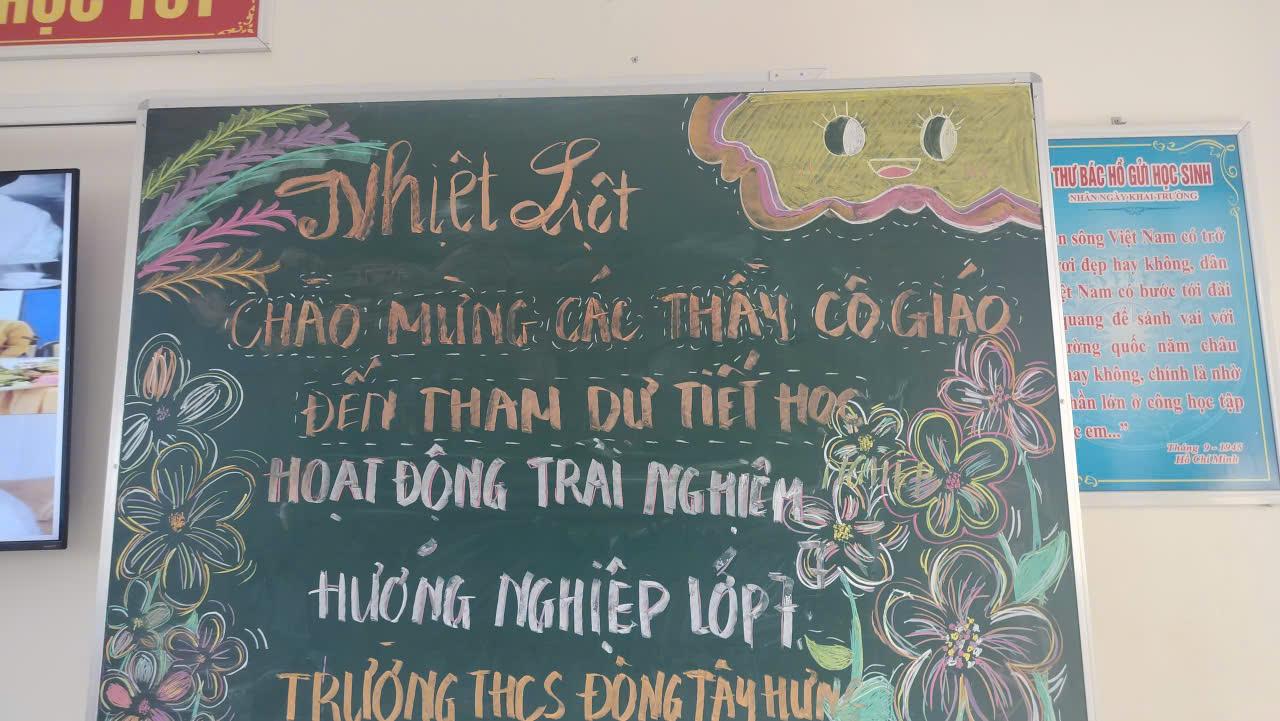 HỌC TỐT
Nhiệt Liệt
CHÀO MỪNG CÁC THẦY CÔ GIÁO
ĐẾN THAM DỰ TIẾT HỌC
HOẠT ĐỘNG TRẢI NGHIỆM
HƯỚNG NGHIỆP LỚP 7
TRƯỜNG THCS ĐÔNG TÂY HƯNG
THƯ BÁC HỒ GỬI HỌC SINH
NHÂN NGÀY KHAI TRƯỜNG
n sông Việt Nam có trở
ơi đẹp hay không, dân
ệt Nam có bước tới đài
quang để sánh vai với
ường quốc năm châu
hay không, chính là nhờ
hần lớn ở công học tập
c em..."
Tháng 9 - 1945
Hồ Chí Minh